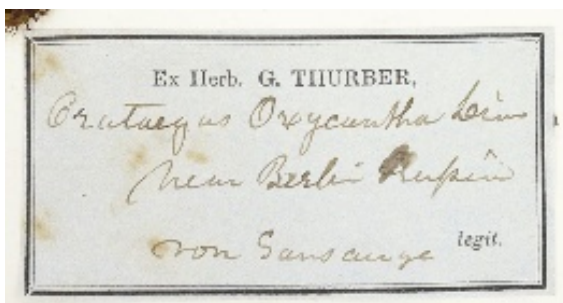 Ex Herb. G. THURBER,
Crataegus Oxycantha Linn
near Berlin Prussia
von Gansauge legit.